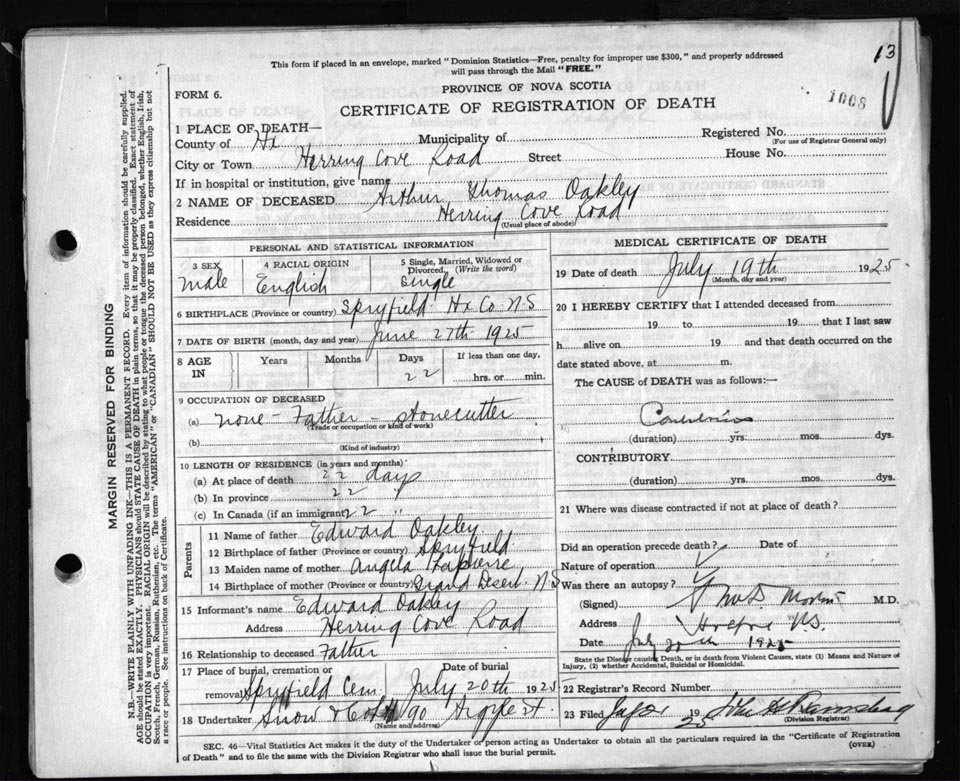 This form if placed in an envelope, marked "Dominion Statistics—Free, penalty for improper use $300," and properly addressed
will pass through the Mail "FREE."
13
1008
PROVINCE OF NOVA SCOTIA
FORM 6.
CERTIFICATE OF REGISTRATION OF DEATH
1 PLACE OF DEATH—
County of Hx Municipality of Registered No.
(For use of Registrar General only)
City or Town Herring Cove Road Street House No.
If in hospital or institution, give name
2 NAME OF DECEASED Arthur Thomas Oakley
Residence Herring Cove Road
(Usual place of abode)
PERSONAL AND STATISTICAL INFORMATION
3 SEX
male
4 RACIAL ORIGIN
English
5 Single, Married, Widowed or
Divorced. (Write the word)
Single
6 BIRTHPLACE (Province or country) Spryfield Hx Co N.S
7 DATE OF BIRTH (month, day and year) June 27th 1925
8 AGE IN Years Months Days If less than one day,
22 hrs. or min.
9 OCCUPATION OF DECEASED
(a) none - Father - stonecutter
(Trade or occupation or kind of work)
(b)
(Kind of industry)
10 LENGTH OF RESIDENCE (in years and months)
(a) At place of death 22 days
(b) In province 22
(c) In Canada (if an immigrant) 22 "
Parents
11 Name of father Edward Oakley
12 Birthplace of father (Province or country) Spryfield
13 Maiden name of mother Angela Lapierre
14 Birthplace of mother (Province or country) Grand Desert. N.S
15 Informant's name Edward Oakley
Address Herring Cove Road
16 Relationship to deceased Father
17 Place of burial, cremation or Date of burial
removal Spryfield Cem. July 20th 1925
18 Undertaker Snow & Co 90 Argyle St.
(Name and address)
MEDICAL CERTIFICATE OF DEATH
19 Date of death July 19th 1925
(Month, day and year)
20 I HEREBY CERTIFY that I attended deceased from
19 to 19 that I last saw
h alive on 19 and that death occurred on the
date stated above, at m.
The CAUSE of DEATH was as follows:—
(duration) yrs. mos. dys.
CONTRIBUTORY
(duration) yrs. mos. dys.
21 Where was disease contracted if not at place of death?
Did an operation precede death? Date of
Nature of operation
Was there an autopsy?
(Signed) M.D.
Address N.S.
Date July 20th 1925
State the Disease causing Death, or in death from Violent Causes, state (1) Means and Nature of
Injury, (2) whether Accidental, Suicidal or Homicidal.
22 Registrar's Record Number
23 Filed 19 25
(Division Registrar)
SEC. 46—Vital Statistics Act makes it the duty of the Undertaker or person acting as Undertaker to obtain all the particulars required in the "Certificate of Registration
of Death" and to file the same with the Division Registrar who shall issue the burial permit. (OVER)
MARGIN RESERVED FOR BINDING
N.B.—WRITE PLAINLY WITH UNFADING INK—THIS IS A PERMANENT RECORD. Every item of information should be carefully supplied.
AGE should be stated EXACTLY. PHYSICIANS should STATE CAUSE OF DEATH in plain terms, so that it may be properly classified. Exact statement of
OCCUPATION is very important. RACIAL ORIGIN will be described by stating to what people or tongue the deceased person belonged, whether English, Irish,
Scotch, French, German, Russian, Ruthenian, etc. The terms "AMERICAN" or "CANADIAN" SHOULD NOT BE USED as they express citizenship but not
a race or people. See instructions on back of Certificate.